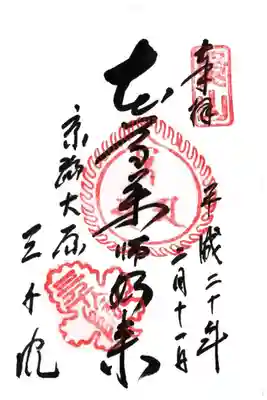 奉拝
魚山
平成二十年
二月十一日
本尊薬師如来
京都大原
三千院